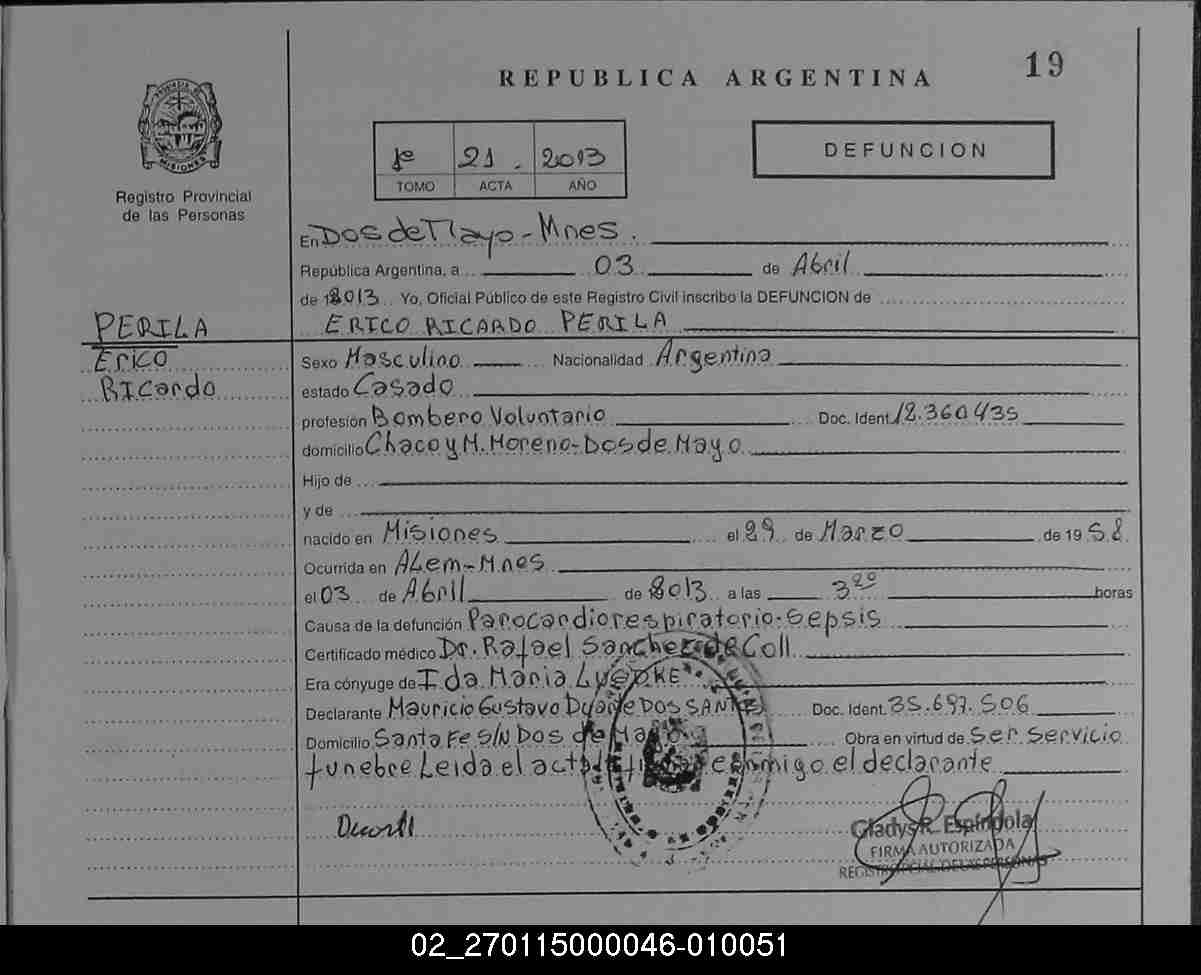 19
REPUBLICA ARGENTINA
DEFUNCION
1º 21. 2013
TOMO ACTA AÑO
PROVINCIA DE MISIONES
Registro Provincial
de las Personas
En Dos de Mayo - Mnes.
República Argentina, a 03 de Abril
de 2013 Yo, Oficial Público de este Registro Civil inscribo la DEFUNCION de
ERICO RICARDO PERILA
PERILA
Erico
Ricardo
Sexo Masculino Nacionalidad Argentina
estado Casado
profesión Bombero Voluntario Doc. Ident. 12.360.435
domicilio Chaco y M. Moreno - Dos de Mayo
Hijo de
y de
nacido en Misiones el 29 de Marzo de 1958.
Ocurrida en ALem - Mnes
el 03 de Abril de 2013 a las 3²⁰ horas
Causa de la defunción Parocardiorespiratorio - Sepsis
Certificado médico Dr. Rafael Sanchez de Coll
Era cónyuge de Ida Maria
Declarante Mauricio Gustavo DOS SANTOS Doc. Ident. 35.697.506
Domicilio Santa Fe S/N Dos de Mayo Obra en virtud de Ser Servicio
funebre Leida el acta firma conmigo el declarante
Gladys R. Espíndola
FIRMA AUTORIZADA
REGISTRO PCIAL. DE LAS PERSONAS
02_270115000046-010051